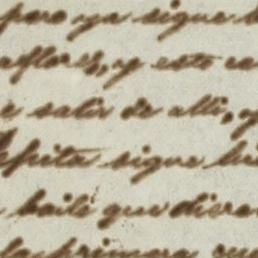 pero ya sigue
aflores, y este
salir de alli, y
Pepita sigue
baile que dieron
la primera